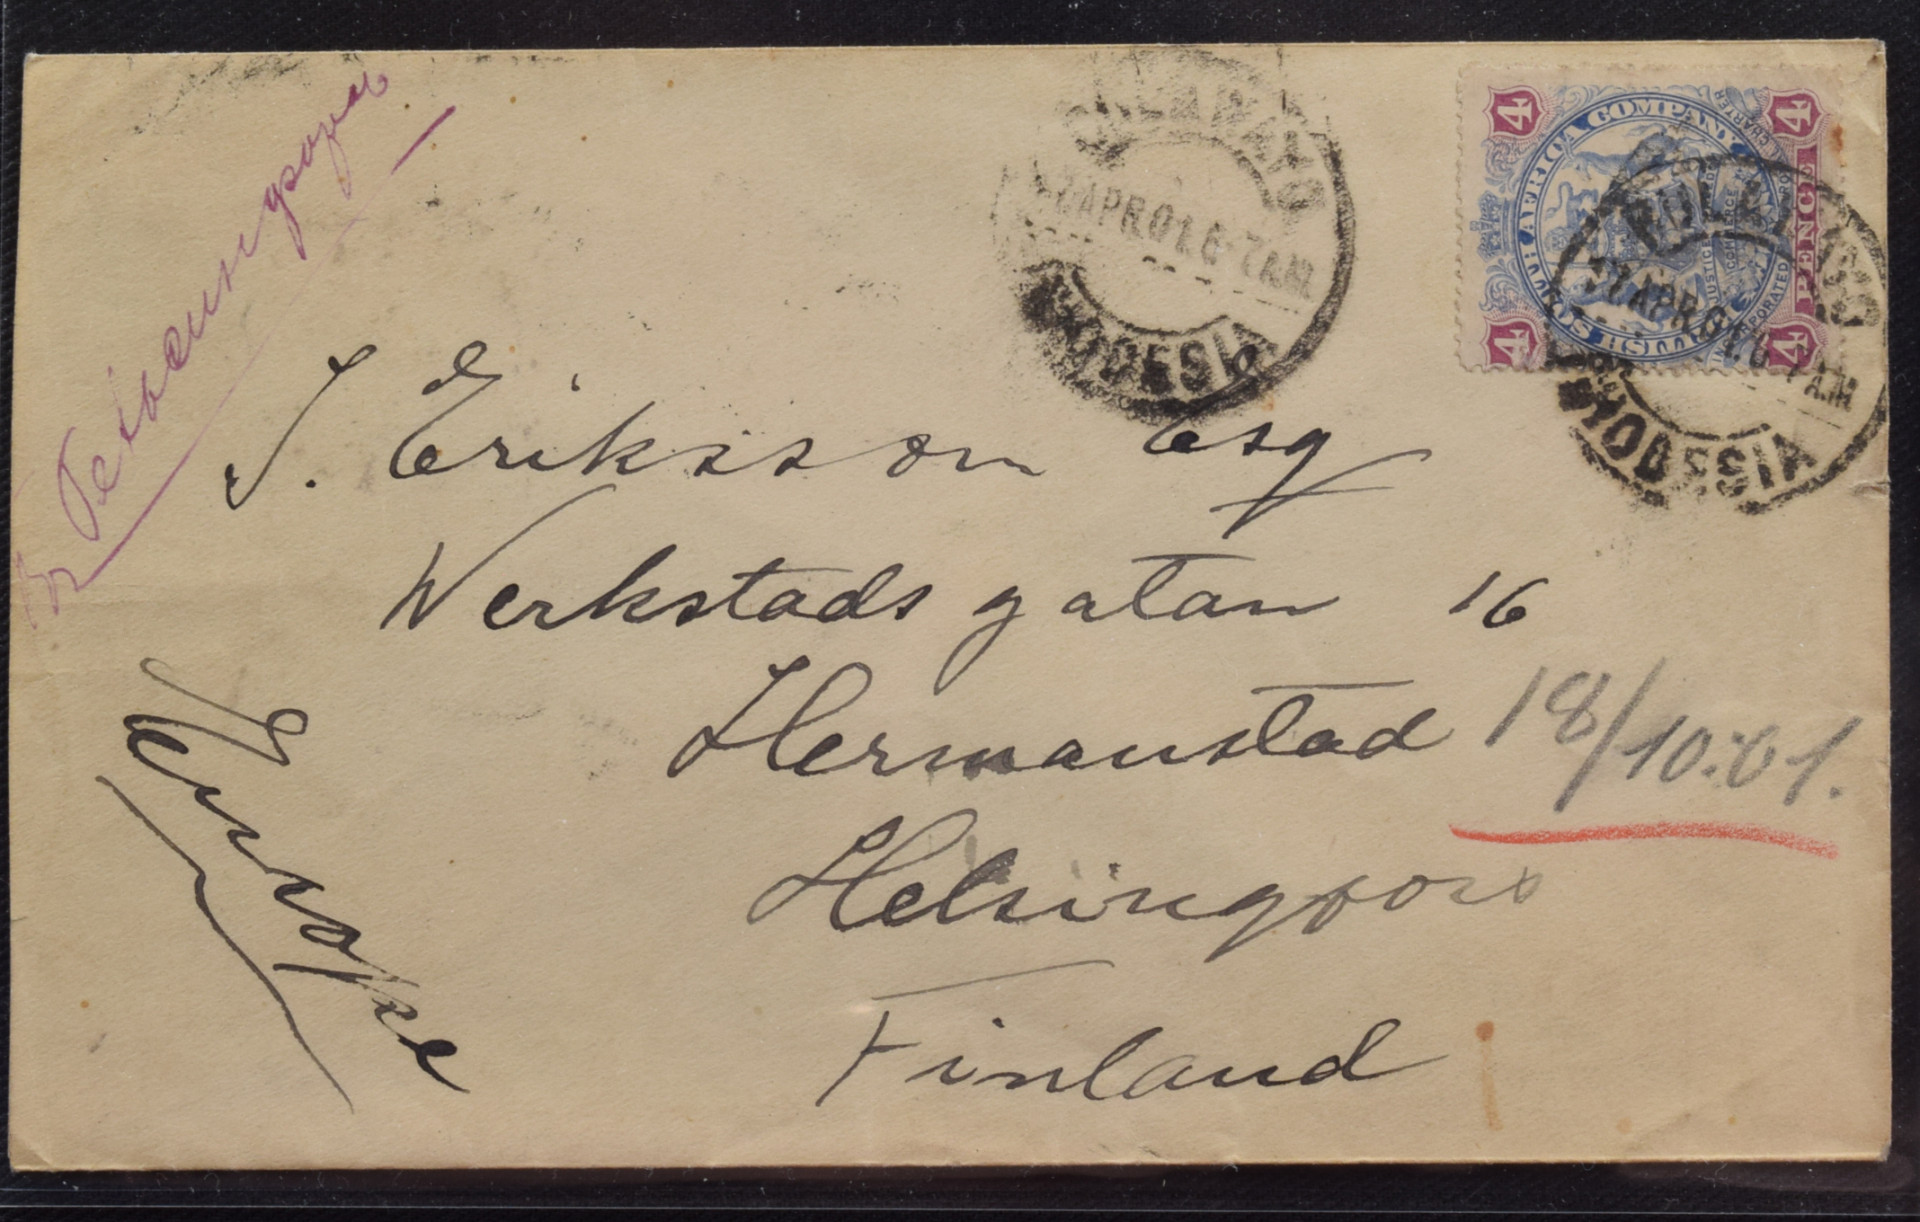 J. Eriksson Esq
Werkstadsgatan 16
Hermanstad
Helsingfors
Finland
Europe
18/10.01.
BULAWAYO
27 APR 01. 6-7 AM
RHODESIA
BULAWAYO
27 APR 01. 6-7 AM
RHODESIA
BRITISH SOUTH AFRICA COMPANY
4 PENCE 4
4 4
JUSTICE COMMERCE
INCORPORATED
CHARTER